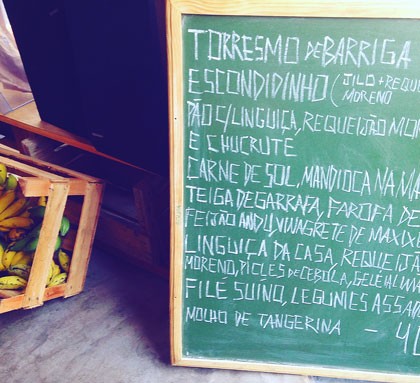 TORRESMO DE BARRIGA
ESCONDIDINHO (JILO + REQUE
MORENO
PÃO C/LINGUIÇA, REQUEIJÃO MO
E CHUCRUTE
CARNE DE SOL, MANDIOCA NA MA
TEIGA DE GARRAFA, FAROFA DE
FEIJÃO ANDU, VINAGRETE DE MAXIX
LINGUIÇA DA CASA, REQUEIJÃ
MORENO, PICLES DE CEBOLA, GELEIA
FILÉ SUINO, LEGUMES ASSA
MOLHO DE TANGERINA - 40